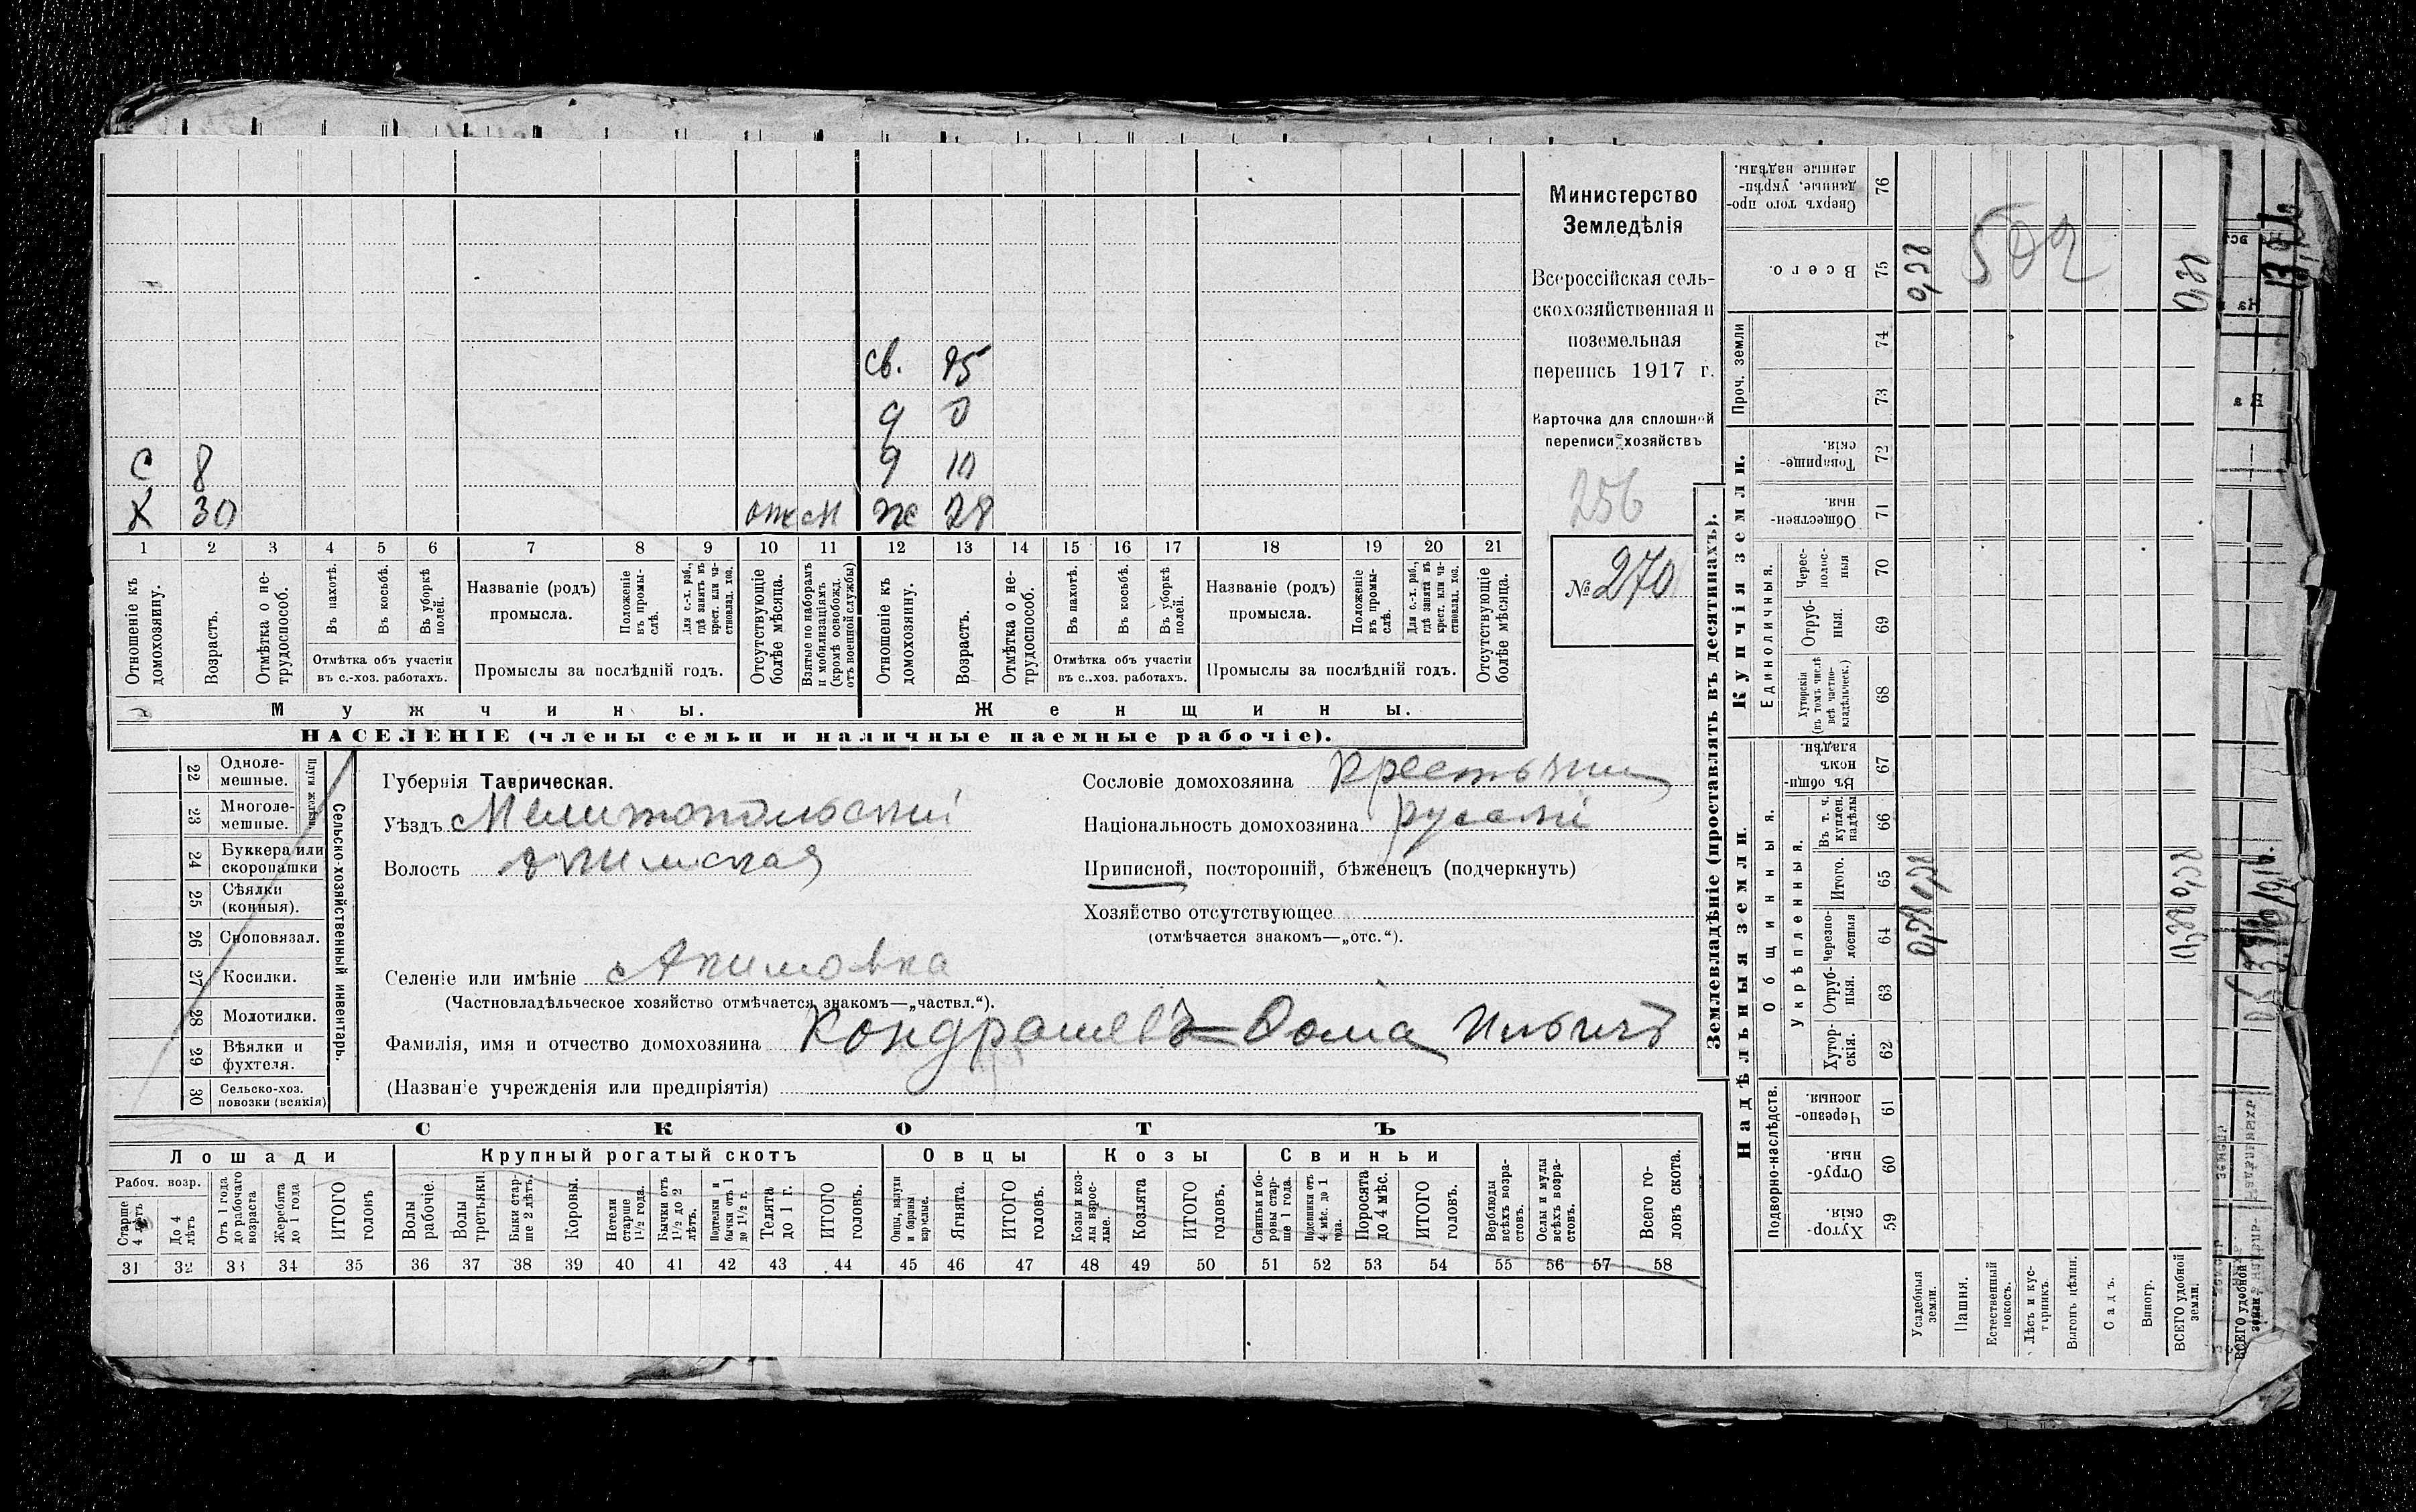 св. 25
9 0
С 8 9 10
Х 30 отс м ж 28
1 2 3 4 5 6 7 8 9 10 11 12 13 14 15 16 17 18 19 20 21
Отношеніе къ домохозяину.
Возрастъ.
Отмѣтка о не-
трудоспособ.
Въ пахотѣ.
Въ косьбѣ.
Въ уборкѣ
полей.
Отмѣтка объ участіи
въ с.-хоз. работахъ.
Названіе (родъ)
промысла.
Положеніе
въ промы-
слѣ.
Для с.-х. раб.,
гдѣ занятъ въ
крест. или ча-
ствовлад. хоз.
Промыслы за послѣдній годъ.
Отсутствующіе
болѣе мѣсяца.
Взятые по наборамъ
и мобилизаціямъ
(кромѣ освобожд.
отъ военной службы)
Отношеніе къ
домохозяину.
Возрастъ.
Отмѣтка о не-
трудоспособ.
Въ пахотѣ.
Въ косьбѣ.
Въ уборкѣ
полей.
Отмѣтка объ участіи
въ с.-хоз. работахъ.
Названіе (родъ)
промысла.
Положеніе
въ промы-
слѣ.
Для с.-х. раб.,
гдѣ занятъ въ
крест. или ча-
ствовлад. хоз.
Промыслы за послѣдній годъ.
Отсутствующіе
болѣе мѣсяца.
Мужчины.
Женщины.
НАСЕЛЕНІЕ (члены семьи и наличные наемные рабочіе).
Министерство
Земледѣлія
Всероссійская сель-
скохозяйственная и
поземельная
перепись 1917 г.
Карточка для сплошной
переписи хозяйствъ
256
№ 270
Сельско-хозяйственный инвентарь.
Плуги желѣзн.
22 Одноле-
мешные.
23 Многоле-
мешные.
24 Буккера или
скоропашки
25 Сѣялки
(конныя).
26 Сноповязал.
27 Косилки.
28 Молотилки.
29 Вѣялки и
фухтеля.
30 Сельско-хоз.
повозки (всякія)
Губернія Таврическая.
Уѣздъ Мелитопольскій
Волость Акимская
Селеніе или имѣніе Акимовка
(Частновладѣльческое хозяйство отмѣчается знакомъ—„частвл.“).
Фамилія, имя и отчество домохозяина Кондрашевъ Фома Ильичъ
(Названіе учрежденія или предпріятія)
Сословіе домохозяина крестьянин
Національность домохозяина русскій
Приписной, посторонній, бѣженецъ (подчеркнуть)
Хозяйство отсутствующее
(отмѣчается знакомъ—„отс.“).
СКОТЪ
Лошади
Крупный рогатый скотъ
Овцы
Козы
Свиньи
Рабоч. возр.
Старше
4 лѣтъ
До 4
лѣтъ
Отъ 1 года
до рабочаго
возраста
Жеребята
до 1 года
ИТОГО
головъ
Волы
рабочіе.
Волы
третьяки.
Быки стар-
ше 2 лѣтъ.
Коровы.
Нетели
старше
1½ года.
Бычки отъ
1½ до 2
лѣтъ.
Подтелки и
бычки отъ 1
до 1½ г.
Телята
до 1 г.
ИТОГО
головъ.
Овцы, валухи
и бараны
взрослые.
Ягнята.
ИТОГО
головъ.
Козы и коз-
лы взрос-
лые.
Козлята
ИТОГО
головъ.
Свиньи и бо-
ровы стар-
ше 1 года.
Подсвинки отъ
4 мѣс. до 1
года.
Поросята
до 4 мѣс.
ИТОГО
головъ.
Верблюды
всѣхъ возра-
стовъ.
Ослы и мулы
всѣхъ возра-
стовъ.
Всего го-
ловъ скота.
31 32 33 34 35 36 37 38 39 40 41 42 43 44 45 46 47 48 49 50 51 52 53 54 55 56 57 58
Землевладѣніе (проставлять въ десятинахъ).
Надѣльныя земли.
Купчія земли.
Проч. земли
Подворно-наслѣдств.
Общинныя.
Укрѣпленныя.
Единоличныя.
Хутор-
скія. 59
Отруб-
ныя. 60
Черезпо-
лосныя. 61
Хутор-
скія. 62
Отруб-
ныя. 63
Черезпо-
лосныя 64
Итого. 65
Въ т. ч.
куплен.
надѣлы 66
Въ общин-
номъ
владѣн. 67
Хуторскія
(въ томъ числѣ
всѣ частно-
владѣльческ.) 68
Отруб-
ныя. 69
Черес-
полос-
ныя 70
Обществен-
ныя. 71
Товарище-
скія. 72
73
74
Всего. 75
Сверхъ того про-
данные, укрѣп-
ленные надѣлы. 76
Усадебныя
земли. 0,28 0,28 0,28
Пашня.
Естественный
покосъ.
Лѣсъ и кус-
тарникъ.
Выгонъ цѣлин.
Садъ.
Виногр.
ВСЕГО удобной
земли. 0,28 0,28 0,28
502
ВСЕГО удобной
земли